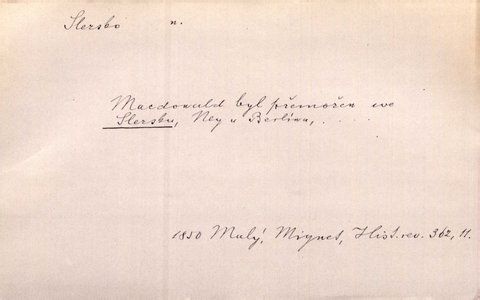 Slersko n.
Macdonald byl přemožen we
Slersku, Ney u Berlína, . . . .
1850 Malý, Mignet, Hist. rev. 362, 11.